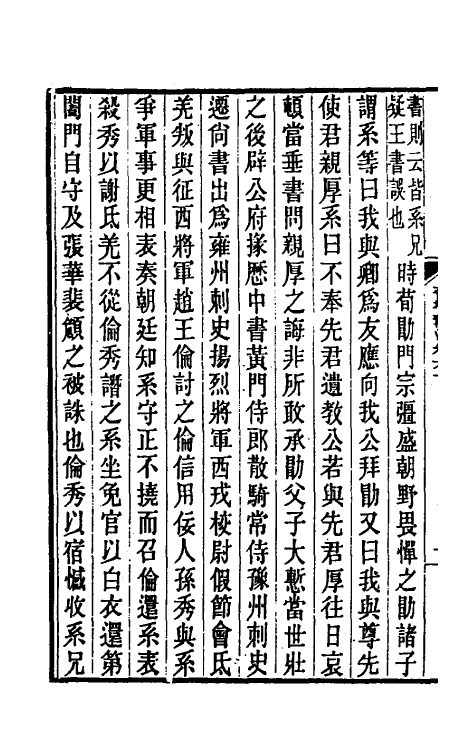 書則云皆系兄
疑王書誤也
時荀勖門宗彊盛朝野畏憚之勖諸子
謂系等曰我與卿爲友應向我公拜勖又曰我與尊先
使君親厚系曰不奉先君遺教公若與先君厚往日哀
頓當垂書問親厚之誨非所敢承勖父子大慙當世壯
之後辟公府掾歷中書黃門侍郎散騎常侍豫州刺史
遷尚書出爲雍州刺史揚烈將軍西戎校尉假節會氐
羌叛與征西將軍趙王倫討之倫信用佞人孫秀與系
爭軍事更相表奏朝廷知系守正不撓而召倫還系表
殺秀以謝氐羌不從倫秀譖之系坐免官以白衣還第
闔門自守及張華裴頠之被誅也倫秀以宿憾收系兄